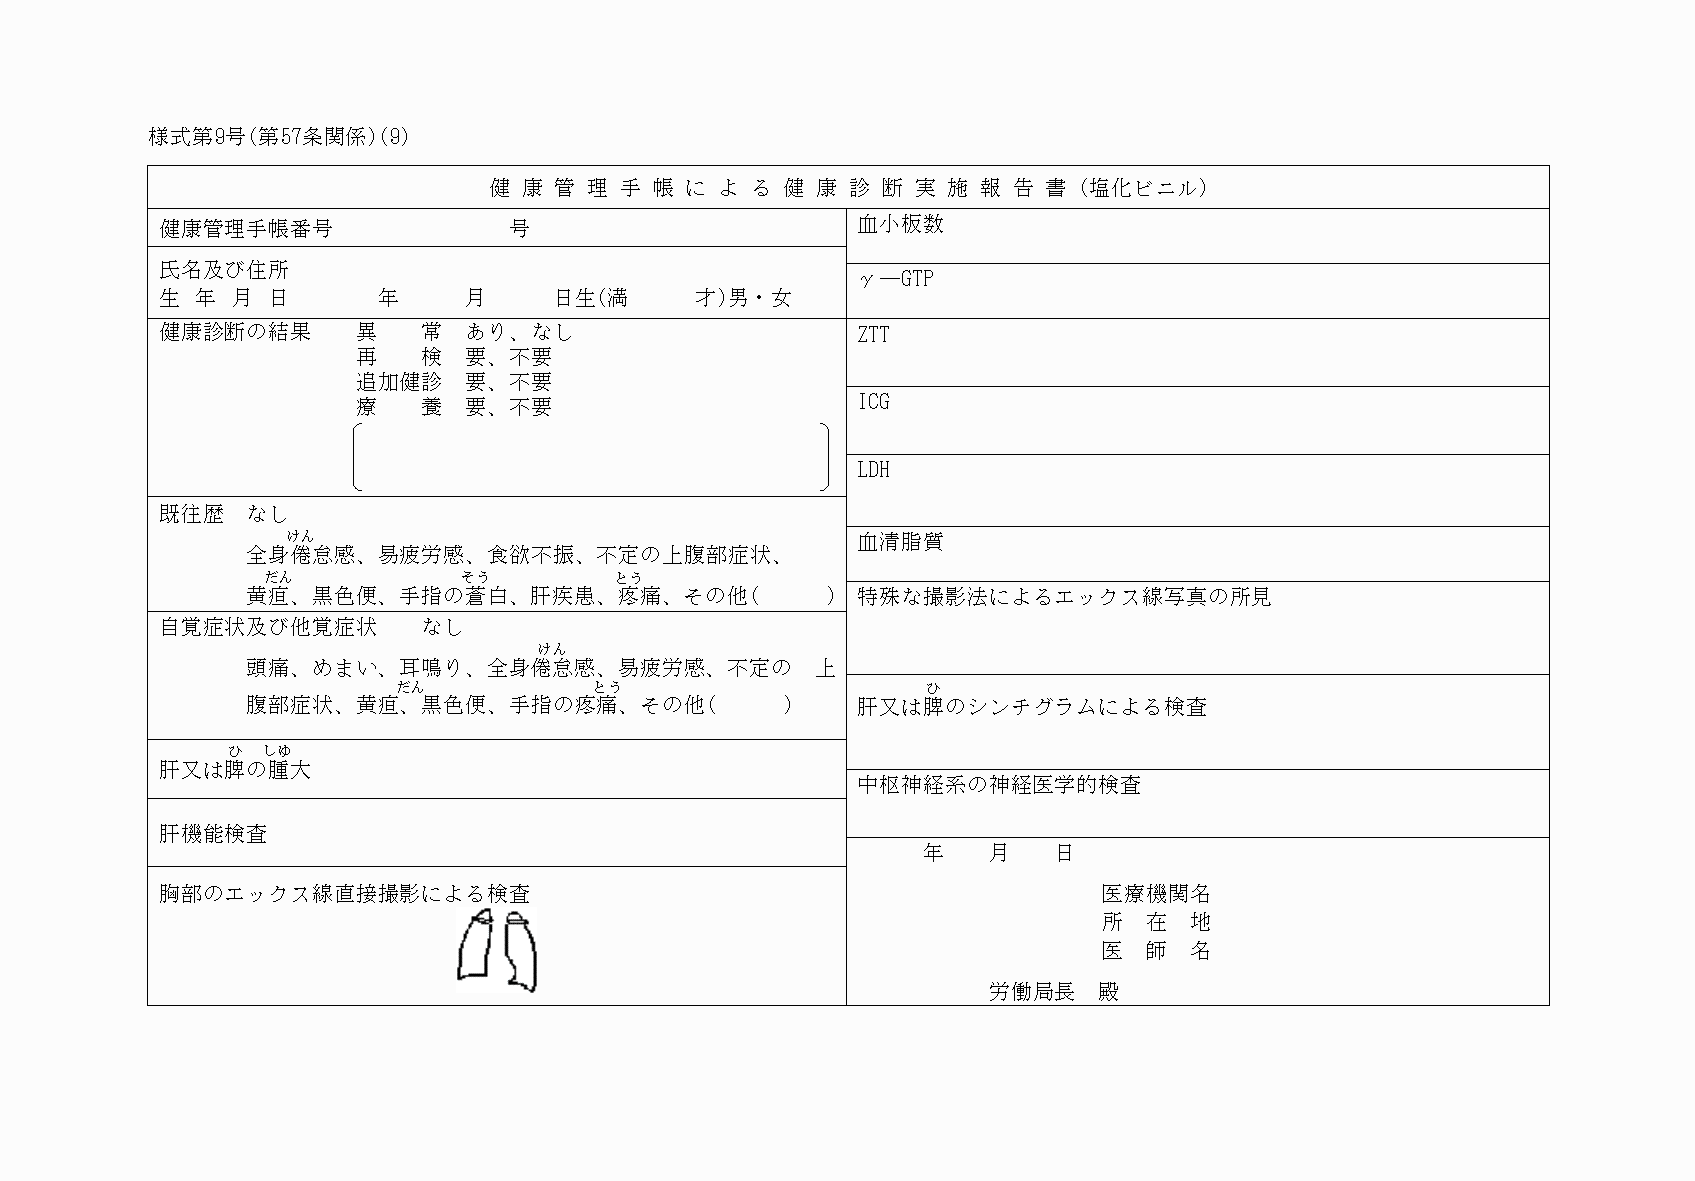 様式第9号(第57条関係)(9)
健康管理手帳による健康診断実施報告書(塩化ビニル)
健康管理手帳番号　　　　　　　　号
氏名及び住所
生年月日　　　　年　　　月　　　日生(満　　　才)男・女
健康診断の結果　　異　　常　あり、なし
再　　検　要、不要
追加健診　要、不要
療　　養　要、不要
既往歴　なし
けん
全身倦怠感、易疲労感、食欲不振、不定の上腹部症状、
だん　そう　とう
黄疸、黒色便、手指の蒼白、肝疾患、疼痛、その他(　　　)
自覚症状及び他覚症状　　なし
けん
頭痛、めまい、耳鳴り、全身倦怠感、易疲労感、不定の　上
だん　とう
腹部症状、黄疸、黒色便、手指の疼痛、その他(　　　)
ひ　しゆ
肝又は脾の腫大
肝機能検査
胸部のエックス線直接撮影による検査
血小板数
γ―GTP
ZTT
ICG
LDH
血清脂質
特殊な撮影法によるエックス線写真の所見
ひ
肝又は脾のシンチグラムによる検査
中枢神経系の神経医学的検査
年　　月　　日
医療機関名
所　在　地
医　師　名
労働局長　殿